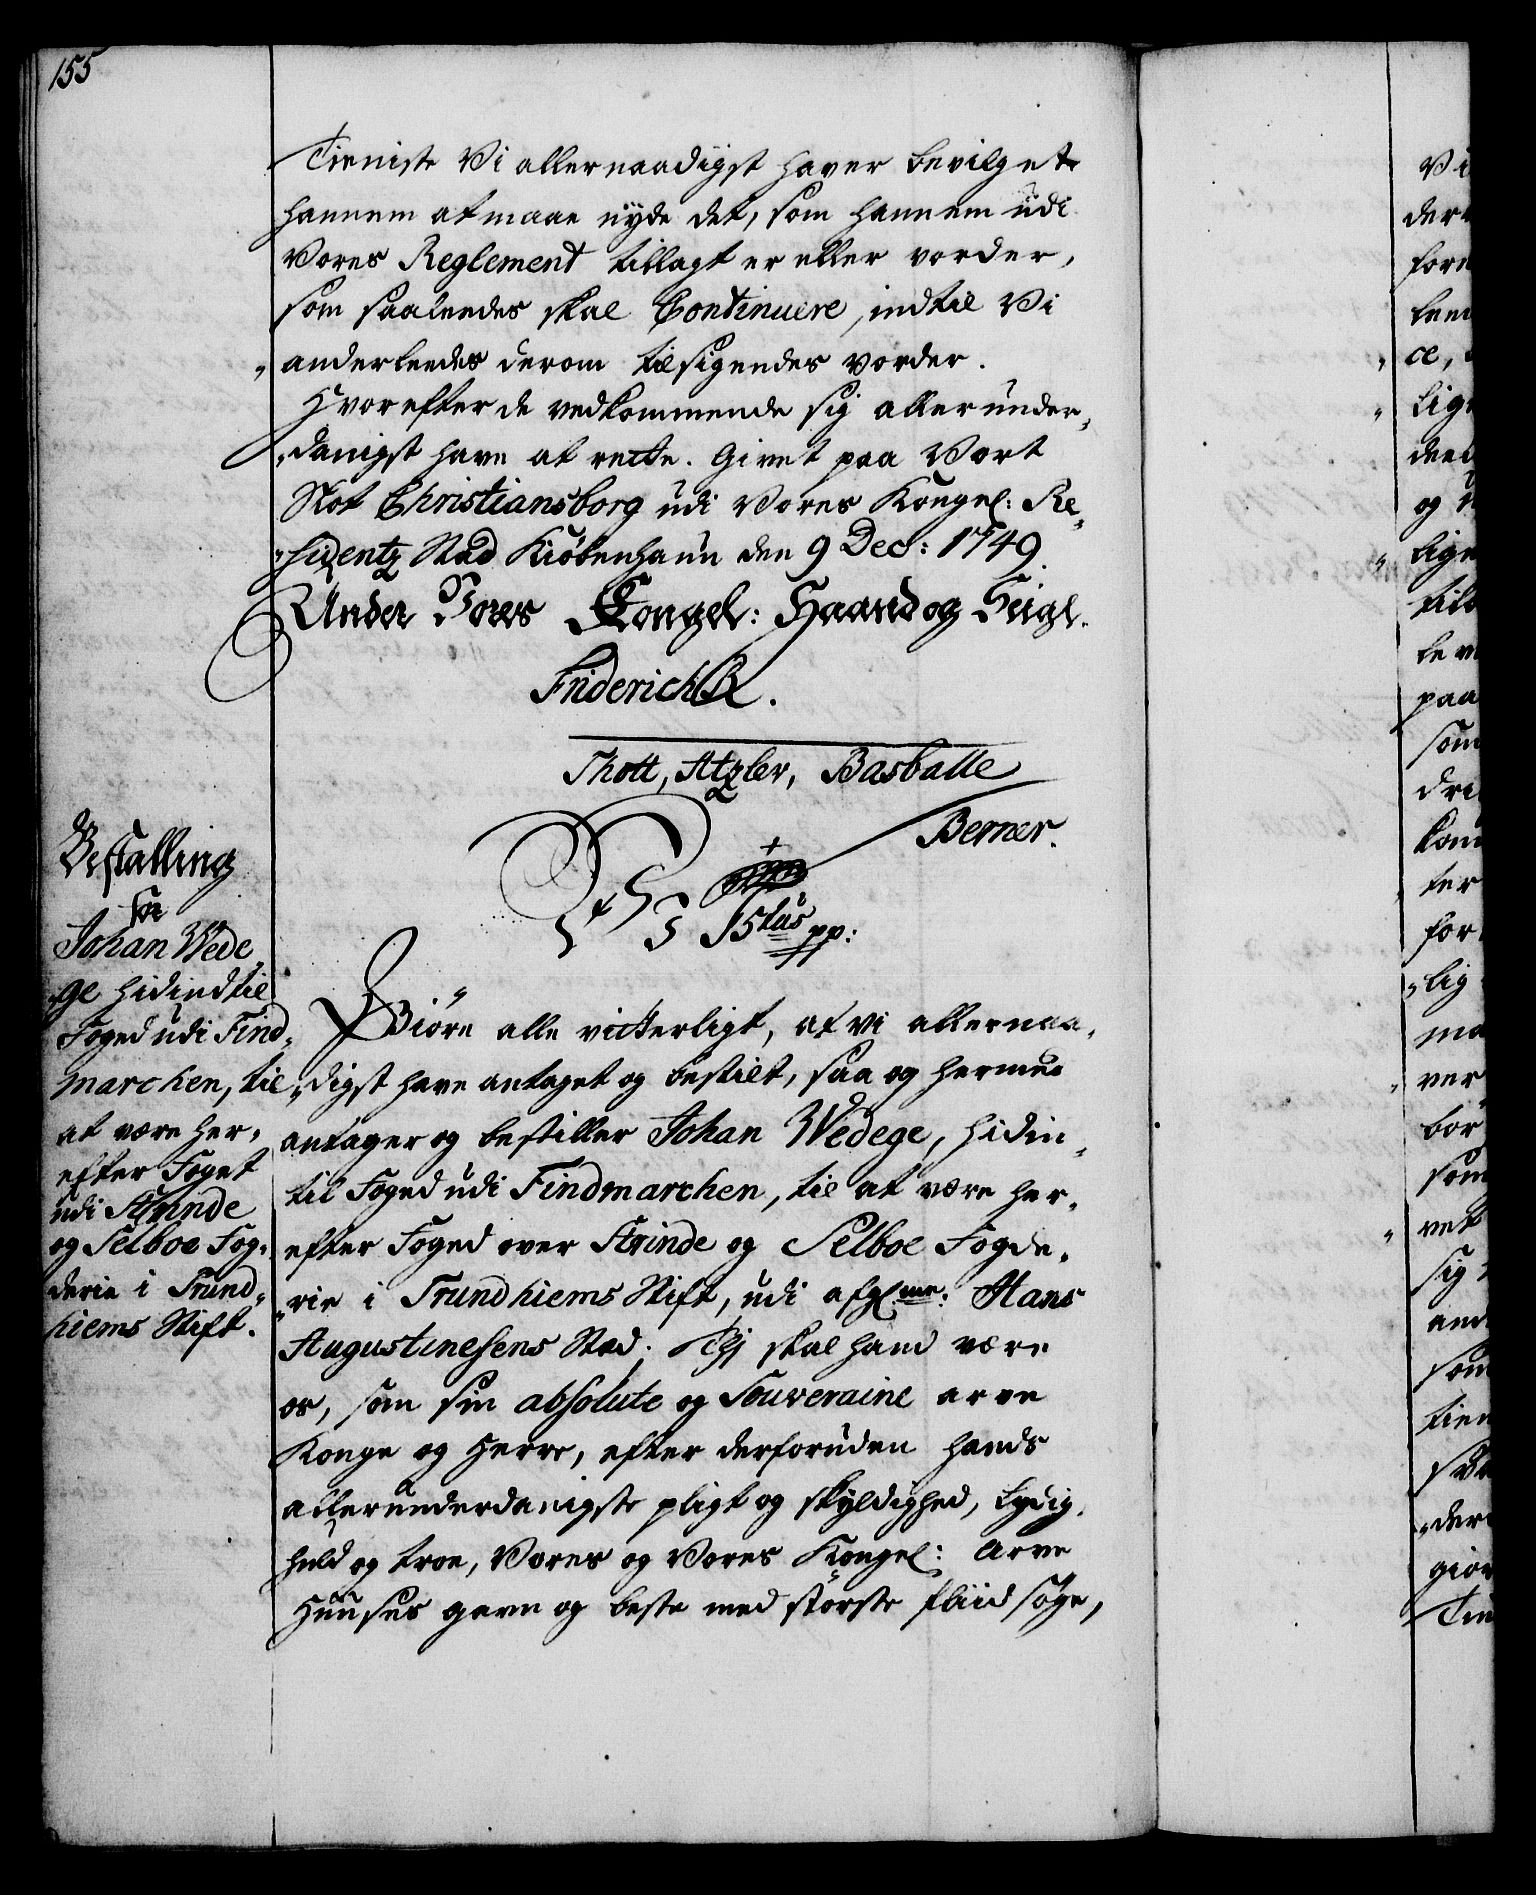 155
Tieniste Vi allernaadigst haver bevilgete
hannem at maae nyde det, som hannem udi
Vores Reglement tillagt er eller vorder,
som saaleedes skal Continuere, indtil Vi
anderleedes derom tilsigendes vorder.
Hvorefter de vedkommende sig allerunder„
„danigst have at rette. Givet paa Vort
Slot Christiansborg udi Vores Kongel: Re„
„sidentz Stad Kiøbenhaun den 9 Dec: 1749.
Under Vores Kongel: Haand og Seigl.
Friderich R.
Thott, Atzlev, Basballe
Berner.
Bestalling
for
Johan Wede„
„ge hidindtil
Foged udi Find„
marchen, til
at være her„
efter Foget
udi Strinde
og Selboe Fog„
derie i Trund„
hiems Stift.
F 5tus pp:
Giøre alle vitterligt, at vi allernaa„
„digst have antaget og bestilt, saa og hermed
antager og bestiller Johan Wedege, hidin„
til Foged udi Findmarchen, til at være her„
efter Foged over Strinde og Selboe Fogde„
„rie i Trundhiems Stift, udi afgl. Hans
Augustinesens Sted. Thj skal hand være
os, som sin absolute og Souveraine arve
Konge og Herre, efter derforuden hands
allerunderdanigste pligt og skyldighed, lydig,
huld og troe, Vores og Vores Kongel: Arve
Huuses gavn og beste med største fliid søge,